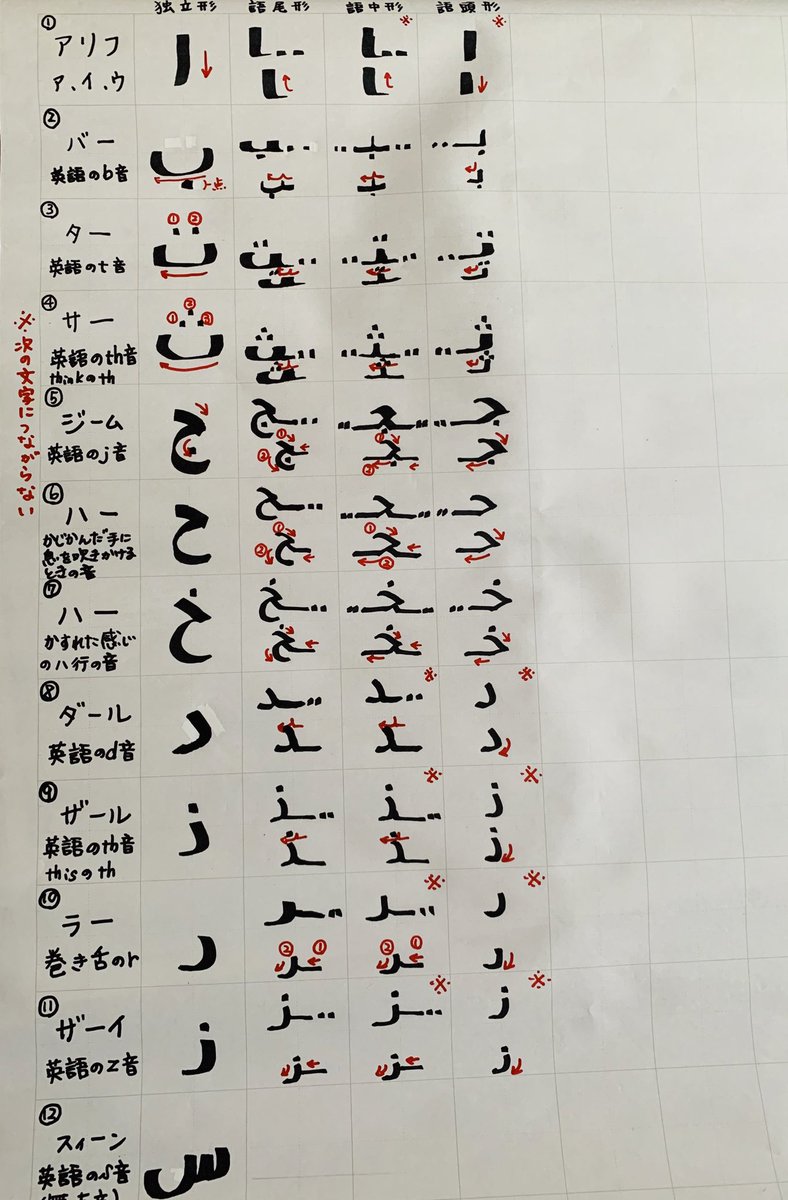 独立形 語尾形 語中形 語頭形
① アリフ
ア、イ、ウ
ا ـا ـا※ ا※
ـا ـا ا
② バー
英語のb音
ب ـب ـبـ بـ
点
ب ـبـ بـ
③ ター
英語のt音
① ②
ت ـت ـتـ تـ
ـت ـتـ تـ
④ サー
英語のth音
thinkのth
① ② ③
ث ـث ـثـ ثـ
ـث ـثـ ثـ
⑤ ジーム
英語のj音
ج ـج ـجـ جـ
① ② ـج ① ② ـجـ جـ
⑥ ハー
かじかんだ手に
息を吹きかける
ときの音
ح ـح ـحـ حـ
① ② ـح ① ② ـحـ حـ
⑦ ハー
かすれた感じ
のハ行の音
خ ـخ ـخـ خـ
ـخ ـخـ خـ
⑧ ダール
英語のd音
د ـد ـد※ د※
ـد ـد د
⑨ ザール
英語のth音
thisのth
ذ ـذ ـذ※ ذ※
ـذ ـذ ذ
⑩ ラー
巻き舌のr
ر ـر ـر※ ر※
② ① ـر ② ① ـر ر
⑪ ザーイ
英語のz音
ز ـز ـز※ ز※
ـز ـز ز
⑫ スィーン
英語のs音
س
※次の文字につながらない